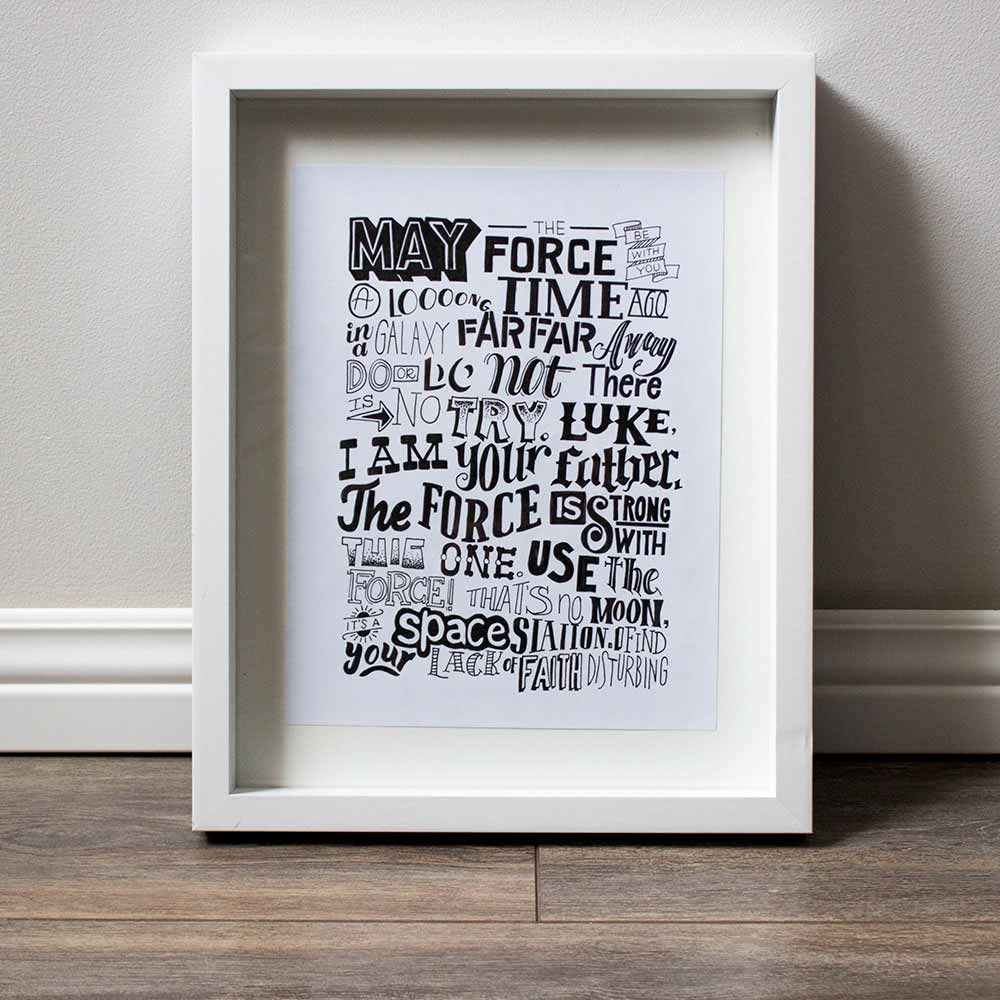 MAY THE FORCE BE WITH YOU
A LOOOONG TIME AGO
in a GALAXY FAR FAR Away
DO OR DO not There
IS NO TRY. LUKE,
I AM your father.
The FORCE IS STRONG WITH
THIS ONE. USE the
FORCE! THAT'S no MOON,
IT'S A space STATION. I FIND
your LACK OF FAITH DISTURBING